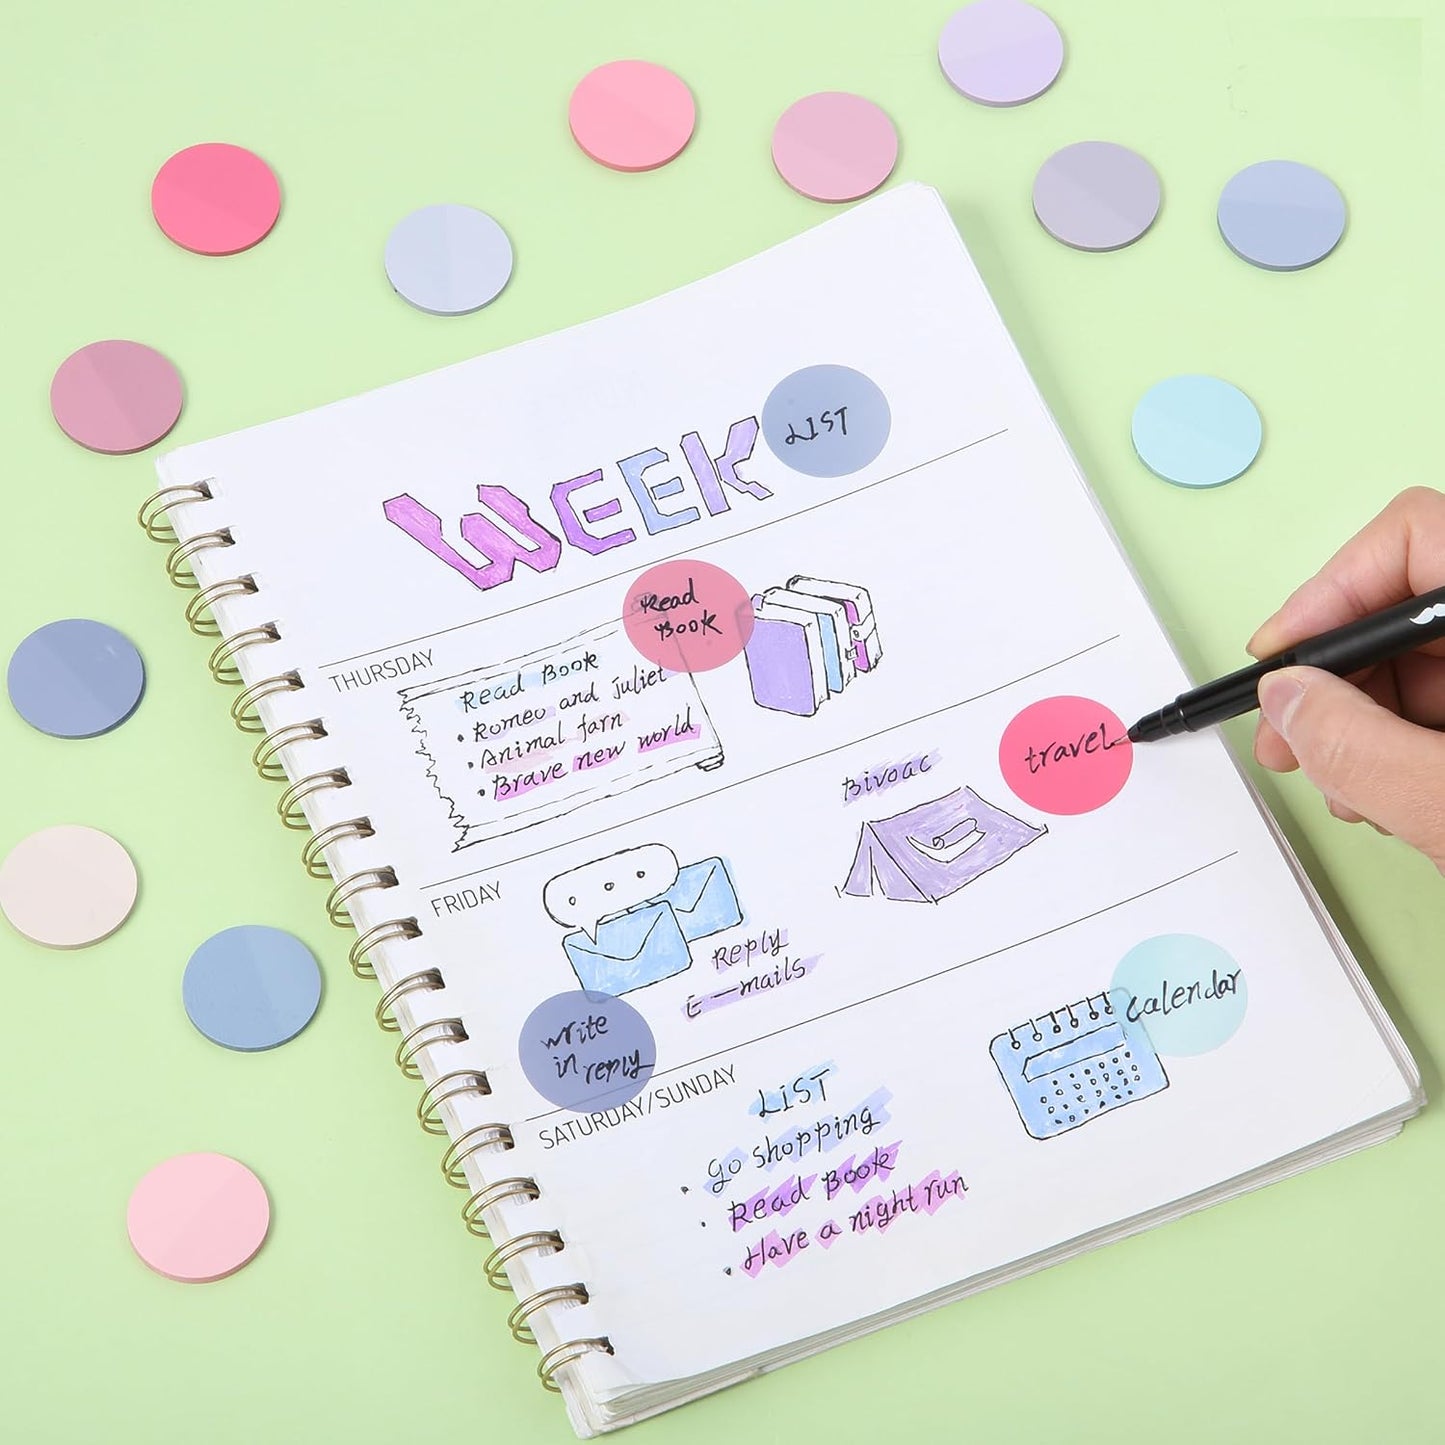 WEEK
LIST
THURSDAY
Read
Book
Read Book
• Romeo and juliet
• Animal farn
• Brave new world
travel
Bivoac
FRIDAY
Reply
E-mails
write
in reply
Calendar
SATURDAY/SUNDAY
LIST
• go shopping
• Read Book
• Have a night run